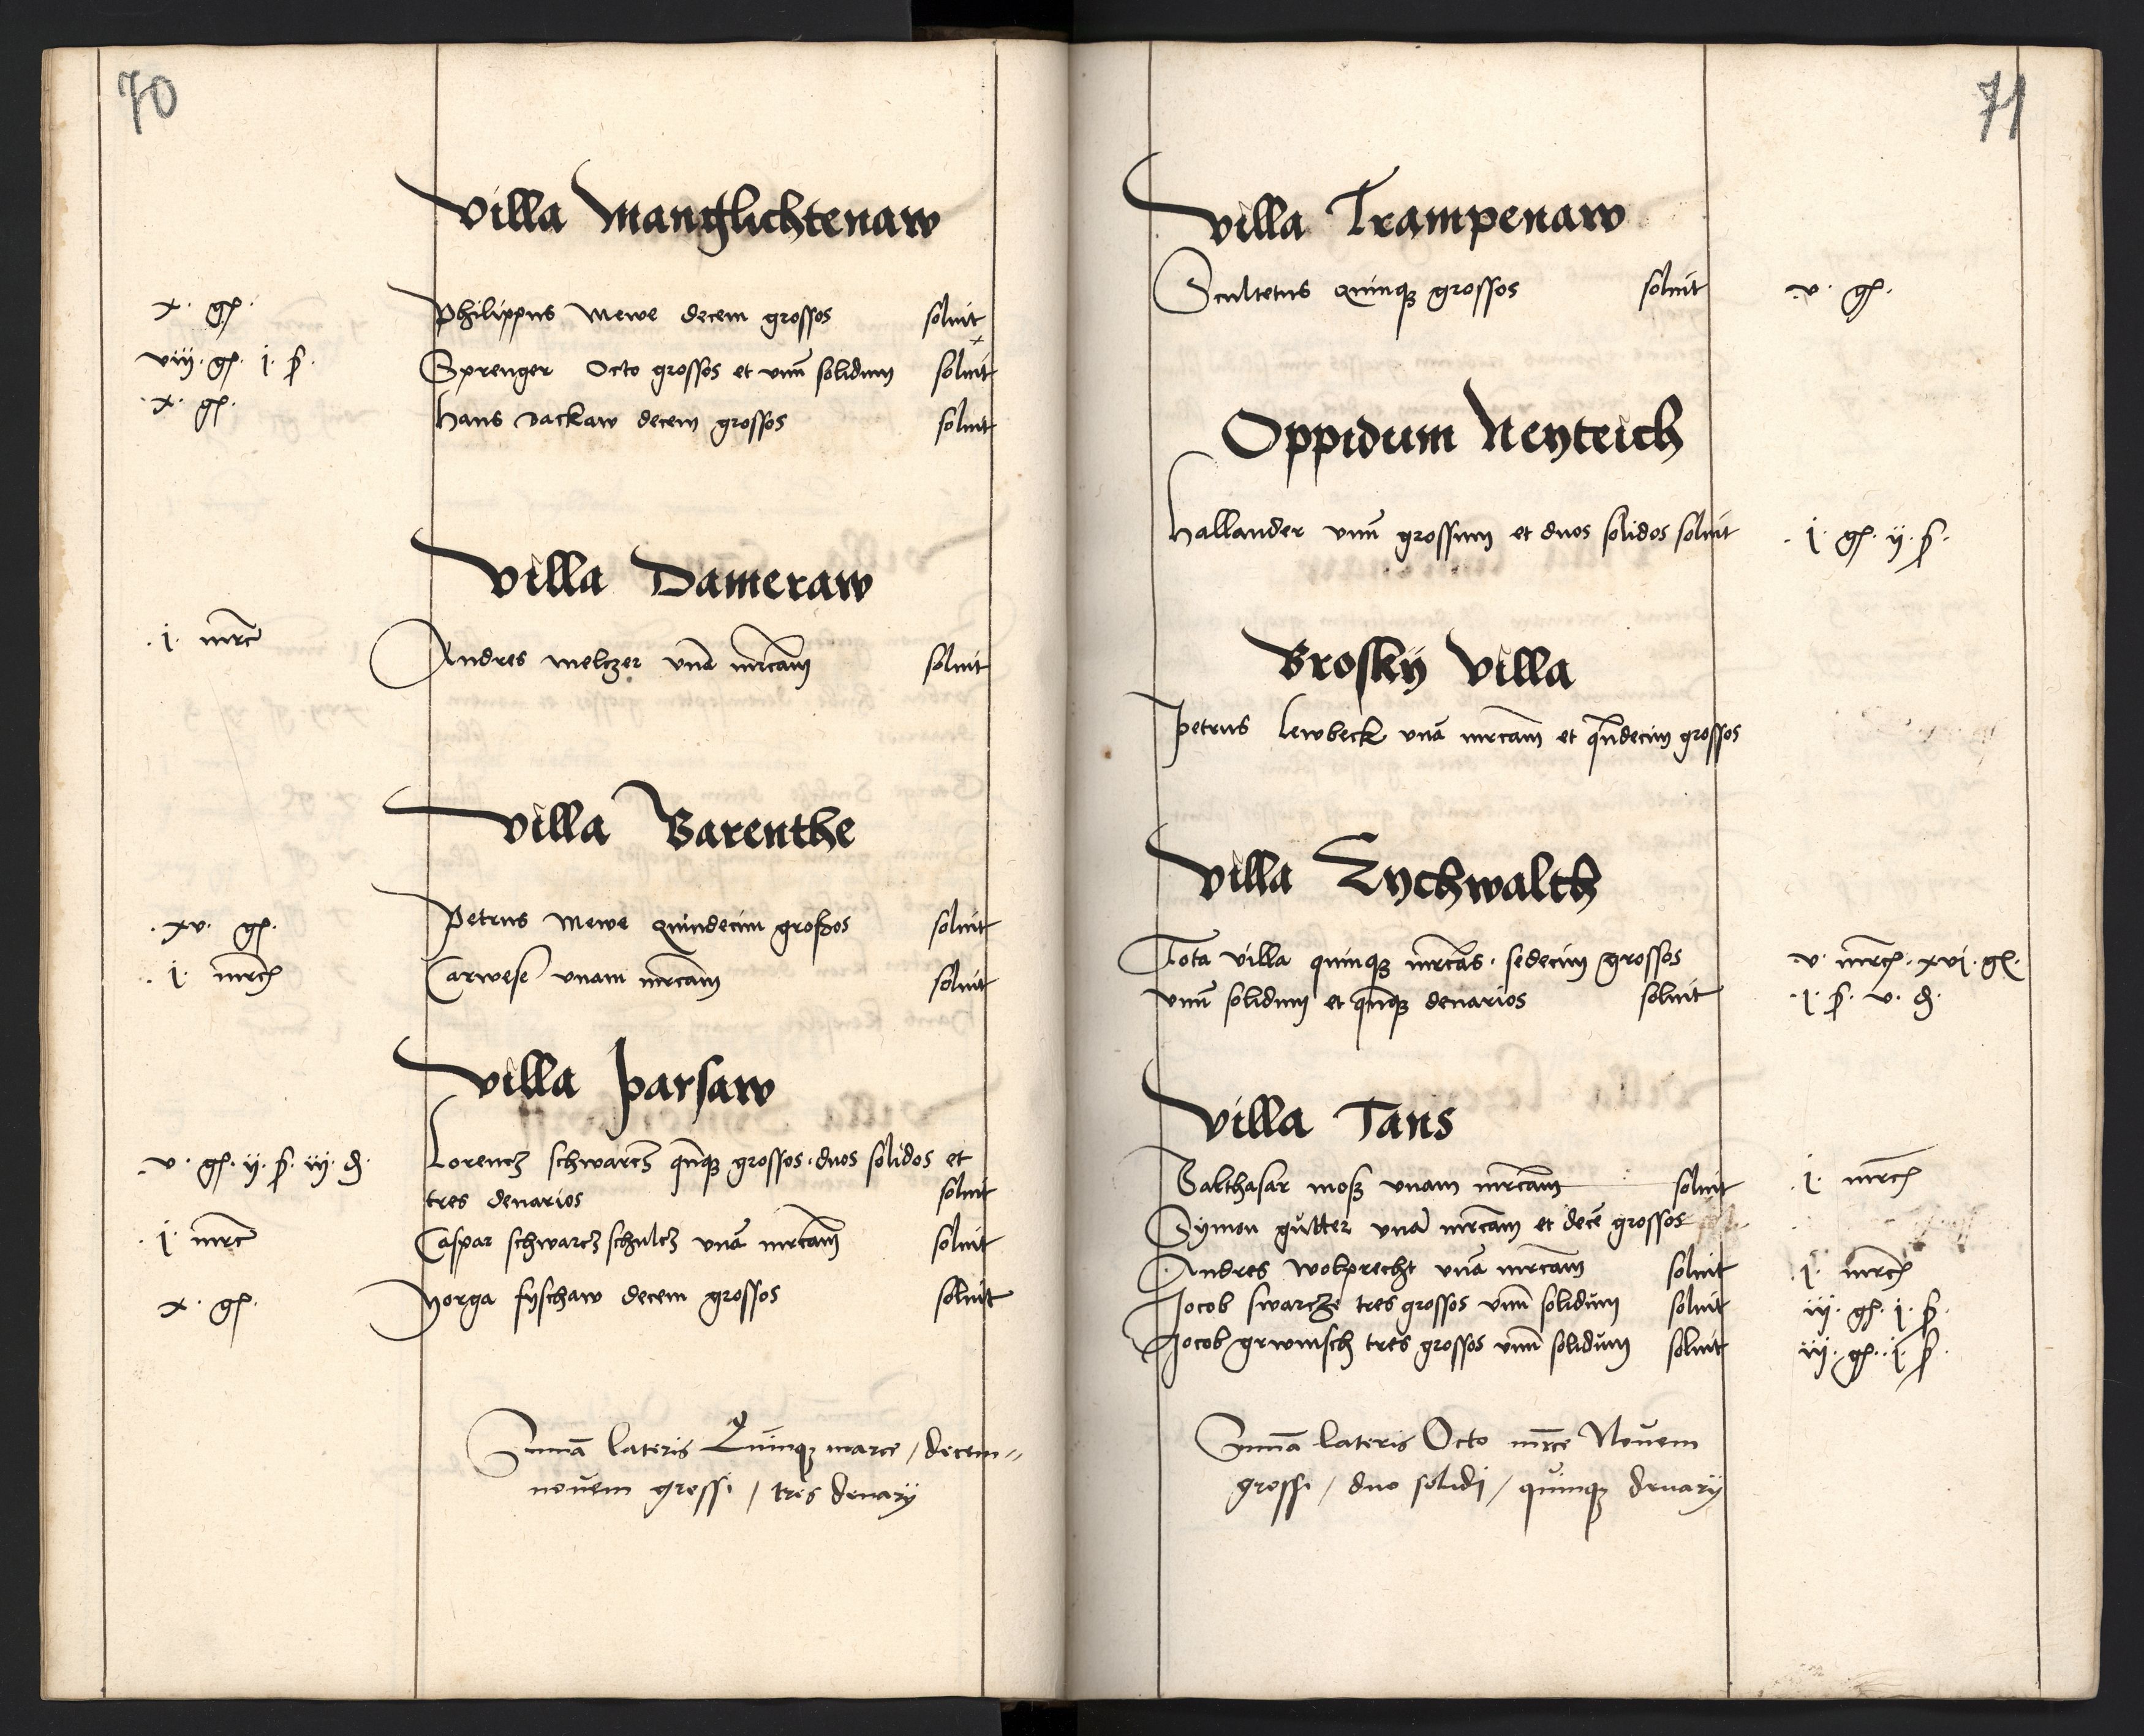 70
Villa Manglichtenaw
x. gſ. Philippus Mewe decem grossos soluit
viij. gſ. j. ſ. Sprenger Octo grossos et vnū solidum soluit
x. gſ. hans dackaw decem grossos soluit
Villa Dameraw
j. mrc Andres melczer vnā mrcam soluit
Villa Barenthe
xv. gſ. Petrus Mewe Quindecim großos soluit
j. mrc Carwese vnam mrcam soluit
Villa Parsaw
v. gſ. ij. ſ. iij. ₰. Lorencz schwarcz qnq₃ grossos. duos solidos et
tres denarios soluit
j. mrc Caspar schwarcz schulcz vnā mrcam soluit
x. gſ. Yorga fyschaw decem grossos soluit
Summa lateris Quinq₃ marce / decem=
nouem grossi / tres denarij
71
Villa Trampenaw
Scultetus Quinq₃ grossos soluit v. gſ.
Oppidum Neyteich
hallander vnū grossum et duos solidos soluit j. gſ. ij. ſ.
Brosky Villa
Petrus Lewbeck vnā mrcam et qndecim grossos
Villa Lychwalth
Tota villa quinq₃ mrcas. sedecim grossos v. mrc. xvj. gſ.
vnū solidum et qnq₃ denarios soluit j. ſ. v. ₰.
Villa Tans
Balthasar moß vnam mrcam soluit j. mrc
Symon gutter vnā mrcam et decē grossos
Andres Wolprecht vnā mrcam soluit j. mrc
Jocob swarcze tres grossos vnū solidum soluit iij. gſ. j. ſ.
Jocob grwnsch tres grossos vnū solidum soluit iij. gſ. j. ſ.
Summa lateris Octo mrce Nouem
grossi / duo solidi / quinq₃ denarij